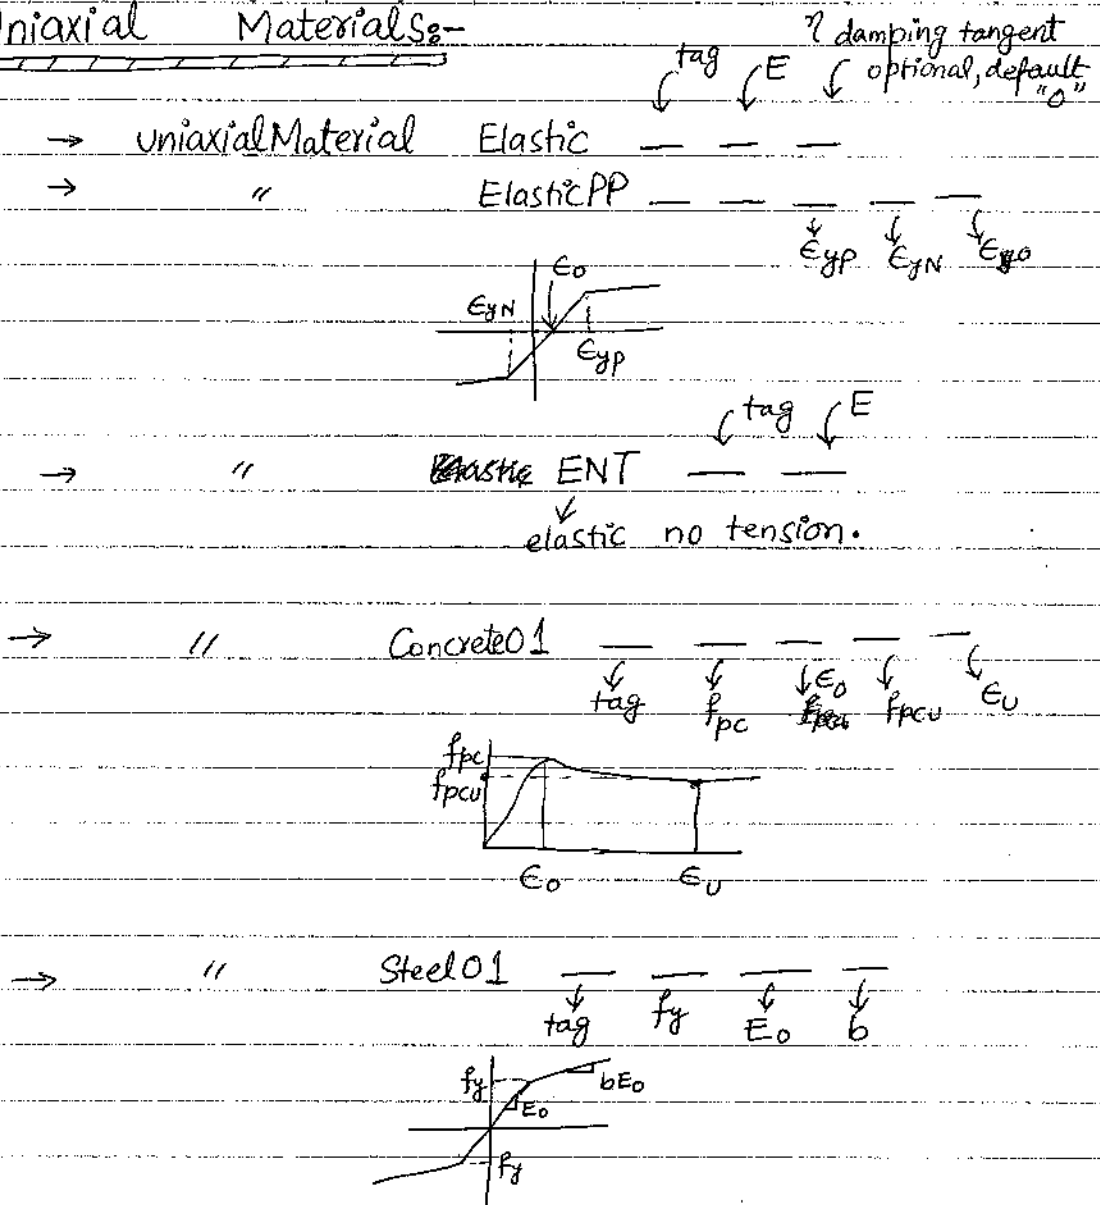 niaxial Materials:-
η damping tangent
tag E optional, default "0"
→ uniaxialMaterial Elastic — — —
→ " ElasticPP — — — — —
ϵyP ϵyN ϵo
ϵo
ϵyN
ϵyP
tag E
→ " ENT — —
elastic no tension.
→ " Concrete01 — — — — —
tag fpc ϵo fpcu ϵU
fpc
fpcu
ϵo ϵU
→ " Steel01 — — — —
tag fy Eo b
fy bEo
Eo
fy